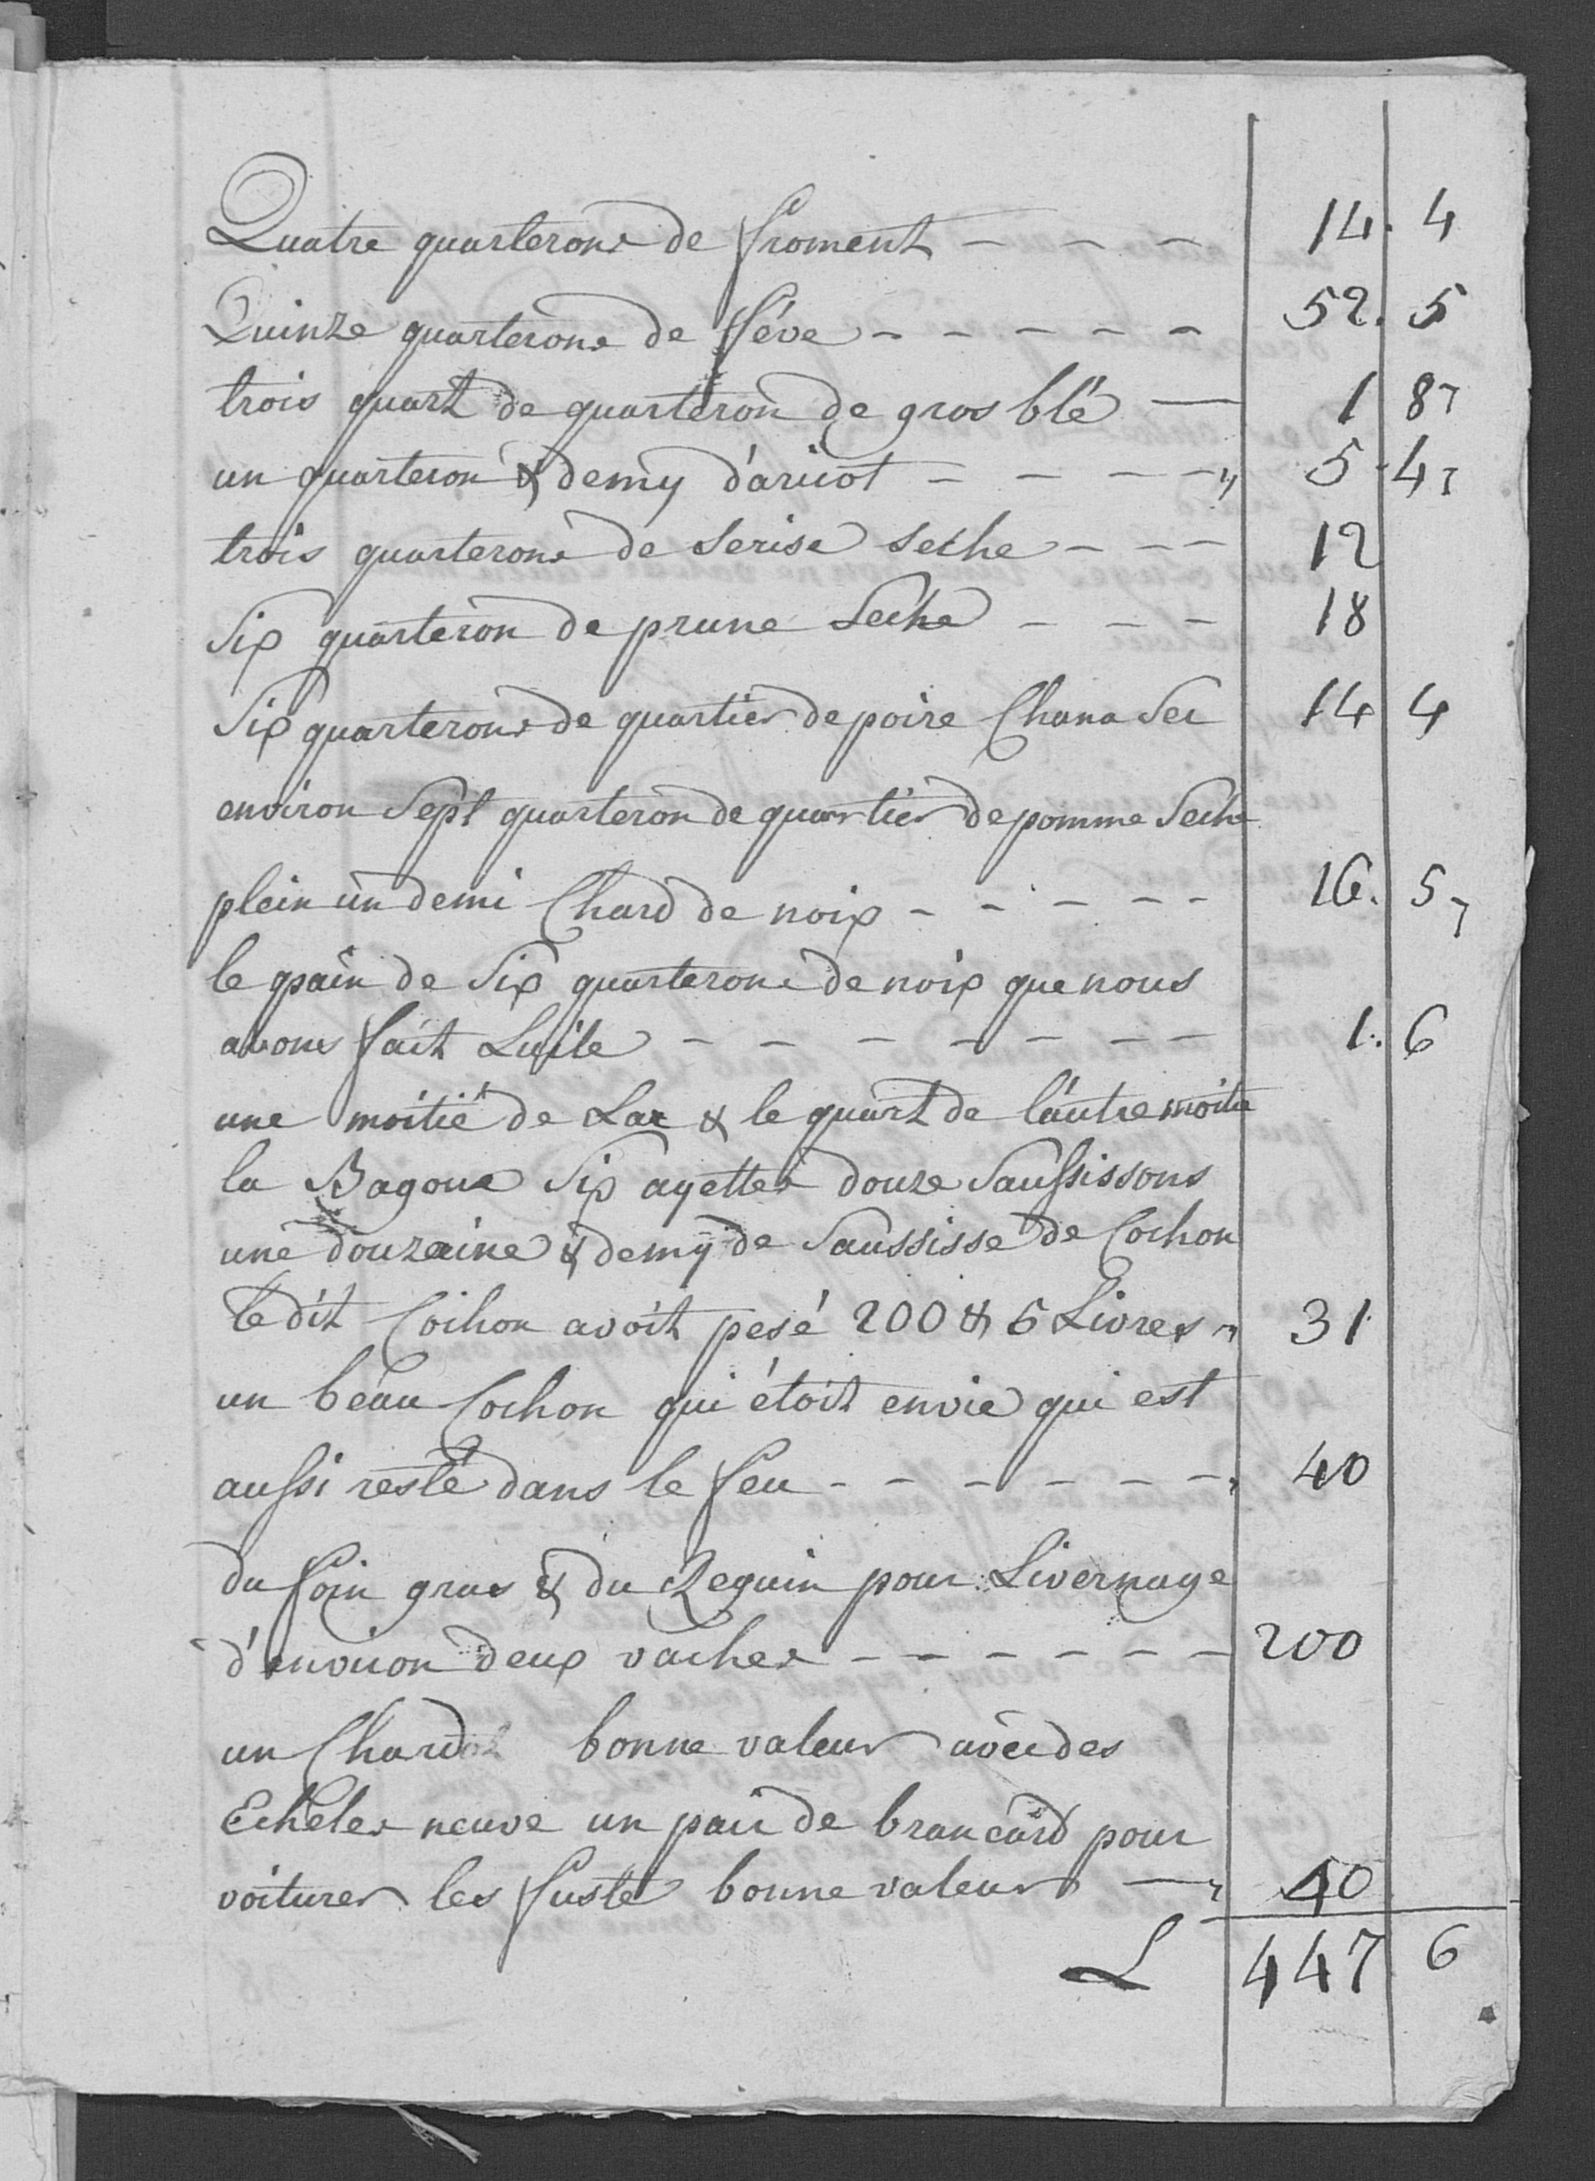 Quatre quarterons de froment - - - - 14. 4
Quinze quarterons de fféve - - - - - - 52. 5
trois quart de quarteron de gros blé — 1 8
un quarteron & demy d'aricot - - - - - " 5. 4
trois quarterons de Serise seche - - - 12
Six quarteron de prune Seche - - - 18
Six quarterons de quartier de poire Chana Sec 14 4
environ Sept quarteron de quartier de pomme Seche
plein un demi Chard de noix - - - - - - 16. 5
le pain de Six quarterons de noix que nous
avons fait Luile - - - - - - - - 1. 6
une moitié de Lar & le quart de l'autre moitie
la Bagoue Six ayettes douze Saussissons
une douzaine & demy de Saussisse de Cochon
le dit Cochon avoit pesé 200 & 5 Livres " 31
un beau Cochon qui étoit envie qui est
aussi resté dans le feu - - - - - - - 40
du foin gras & du Reguin pour Livernage
d'environ deux vaches - - - - - - 200
un Chardot bonne valeur avec des
Echeles neuve un pair de brancard pour
voiturer les fuste bonne valeur — 40
L 447 6